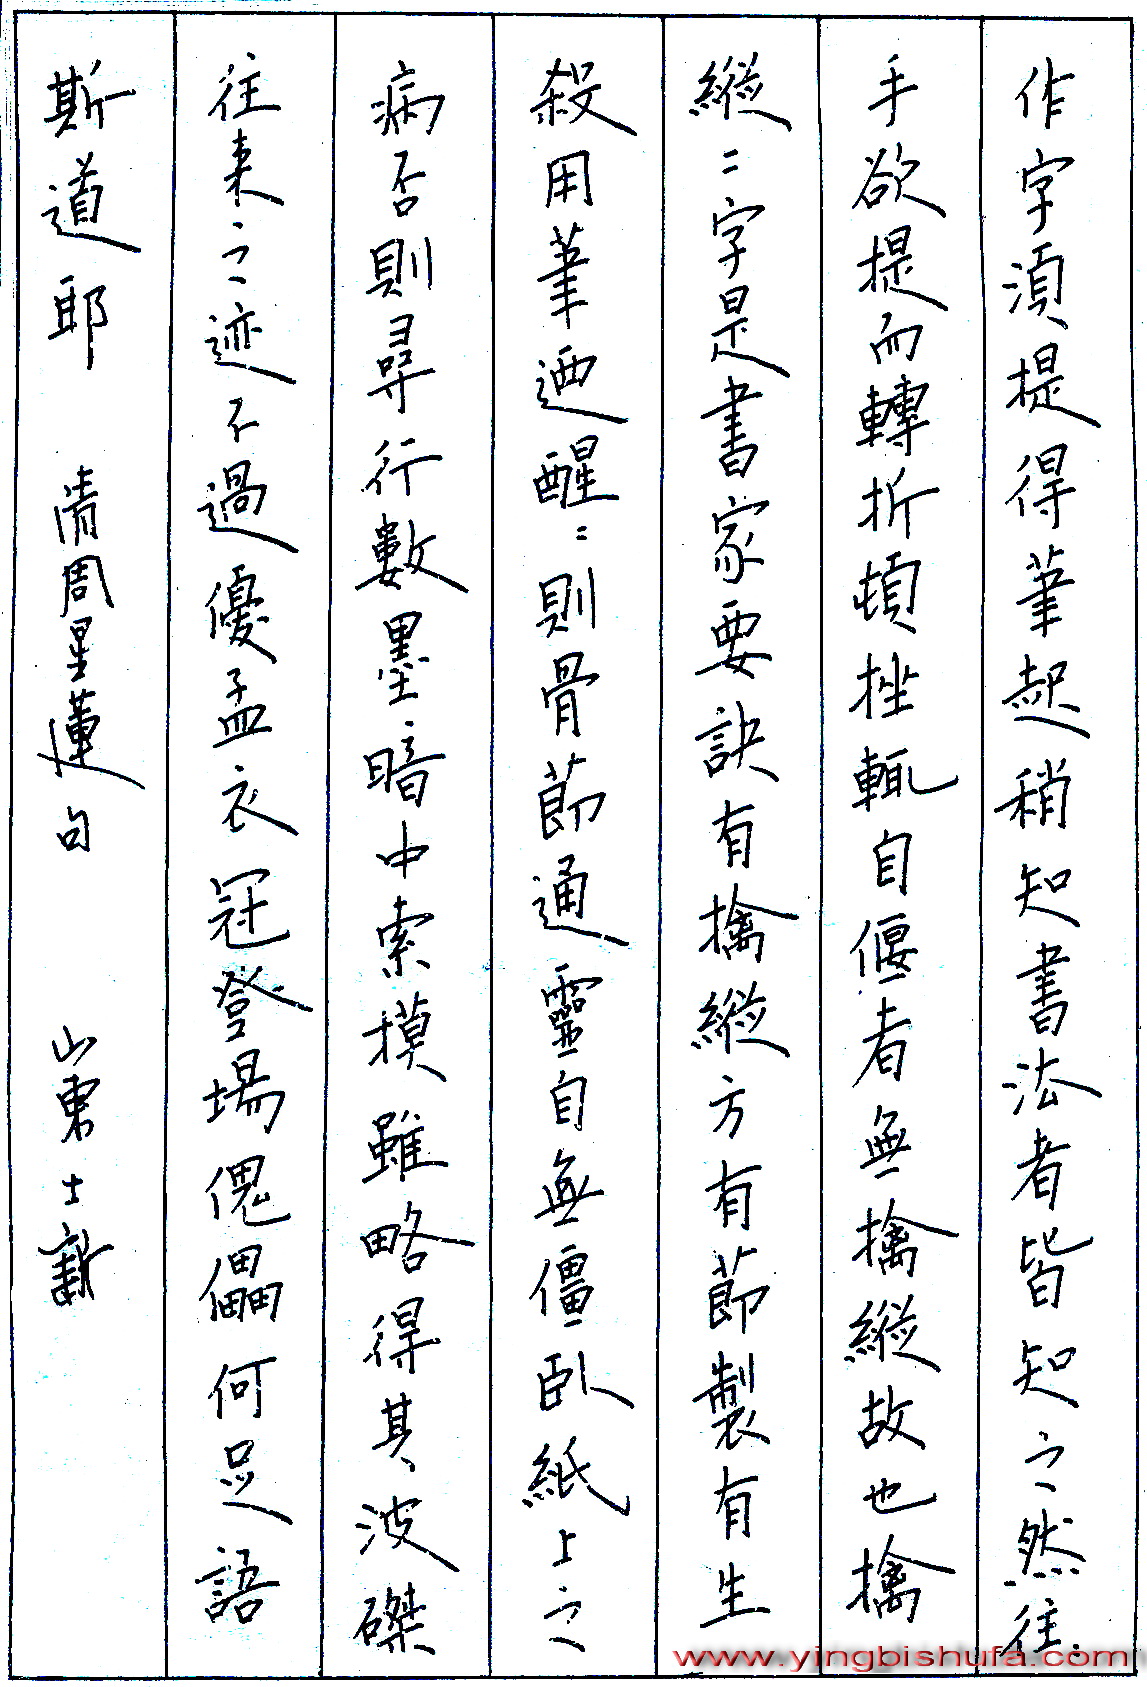 作字須提得筆起稍知書法者皆知之然往:
手欲提而轉折頓挫輒自偃者無擒縱故也擒
縱:字是書家要訣有擒縱方有節製有生
殺用筆迺醒:則骨節通靈自無僵臥紙上之
病否則尋行數墨暗中索摸雖略得其波磔
往來之迹不過優孟衣冠登場傀儡何足語
斯道耶 清周星蓮句 山東士新
www.yingbishufa.com